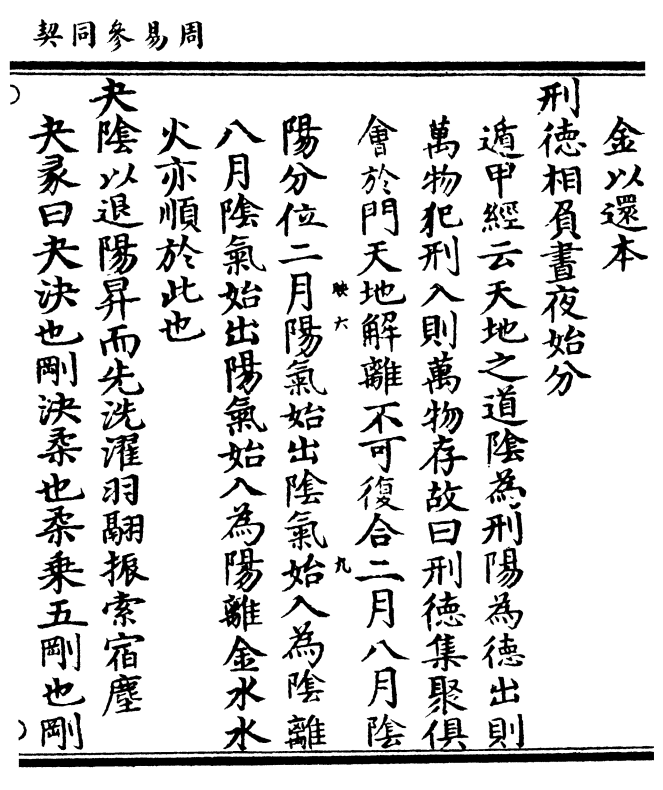 契同參易周
金以還本
刑徳相負晝夜始分
遁甲經云天地之道陰為刑陽為徳出則
萬物犯刑入則萬物存故曰刑徳集聚俱
會於門天地解離不可復合二月八月陰
映六
九
陽分位二月陽氣始出陰氣始入為陰離
八月陰氣始出陽氣始入為陽離金水水
火亦順於此也
夬陰以退陽昇而先洗濯羽翮振索宿塵
夬彖曰夬決也剛決柔也柔乗五剛也剛